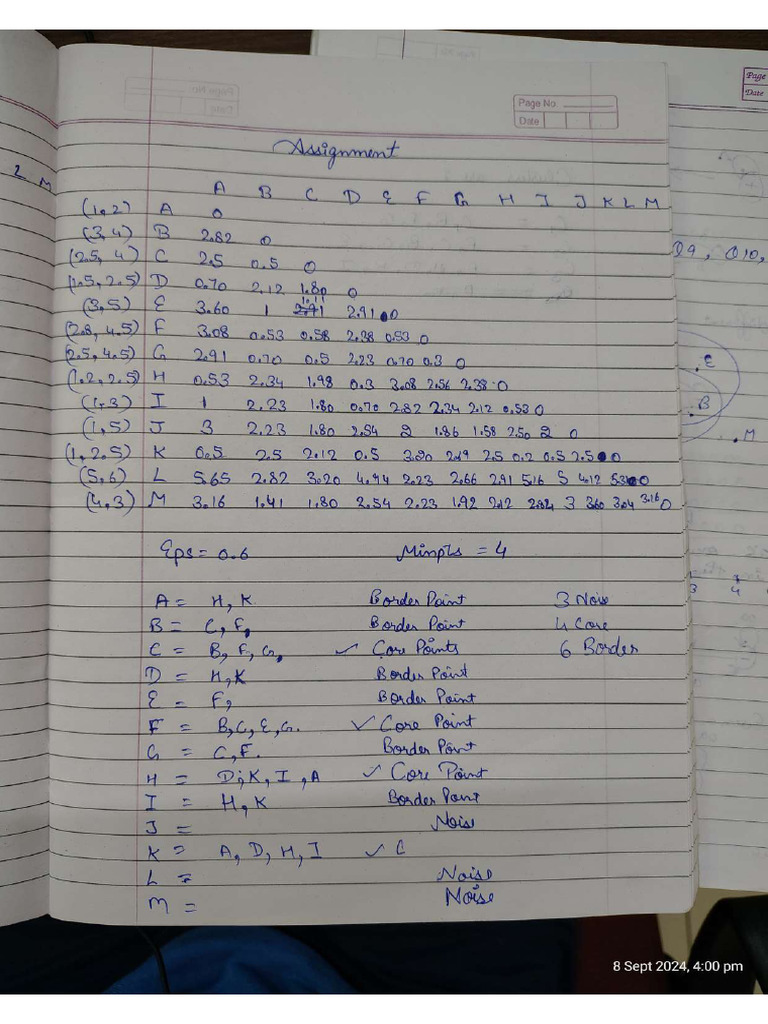 Page No
Date
Page
Date
Assignment
A B C D E F G H I J K L M
(1,2) A 0
(3,4) B 2.82 0
(2.5, 4) C 2.5 0.5 0
(1.5, 2.5) D 0.70 2.12 1.80 0
(3,5) E 3.60 1 1.11 2.91 0
(2.8, 4.5) F 3.08 0.53 0.58 2.38 0.53 0
(2.5, 4.5) G 2.91 0.70 0.5 2.23 0.70 0.3 0
(1.2, 2.5) H 0.53 2.34 1.98 0.3 3.08 2.56 2.38 0
(1,3) I 1 2.23 1.80 0.70 2.82 2.34 2.12 0.53 0
(1,5) J 3 2.23 1.80 2.54 2 1.86 1.58 2.50 2 0
(1, 2.5) K 0.5 2.5 2.12 0.5 3.20 2.69 2.5 0.2 0.5 2.5 0
(5,6) L 5.65 2.82 3.20 4.94 2.23 2.66 2.91 5.16 5 4.12 5.31 0
(4,3) M 3.16 1.41 1.80 2.54 2.23 1.92 2.12 2.84 3 3.60 3.04 3.16 0
Eps = 0.6 Minpts = 4
A = H, K. Border Point 3 Noise
B = C, F, Border Point 4 Core
C = B, F, G, ✓ Core Points 6 Border
D = H, K Border Point
E = F, Border Point
F = B, C, E, G. ✓ Core Point
G = C, F. Border Point
H = D, K, I, A ✓ Core Point
I = H, K Border Point
J = Noise
K = A, D, H, I ✓ C
L = Noise
M = Noise
2 M
09, 010,
E
B
M
3 4
8 Sept 2024, 4:00 pm